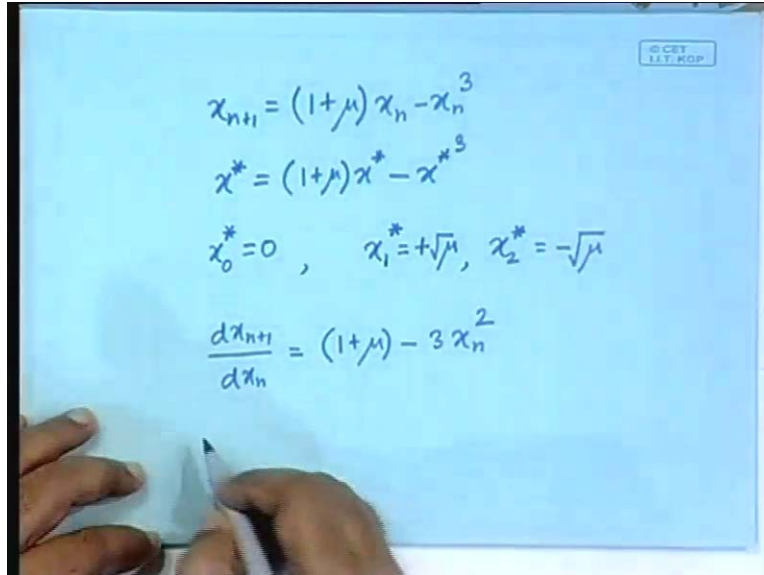 © CET
I.I.T. KGP
xₙ₊₁ = (1+μ) xₙ − xₙ³
x* = (1+μ)x* − x*³
x₀* = 0 , x₁* = +√μ, x₂* = −√μ
dxₙ₊₁/dxₙ = (1+μ) − 3xₙ²